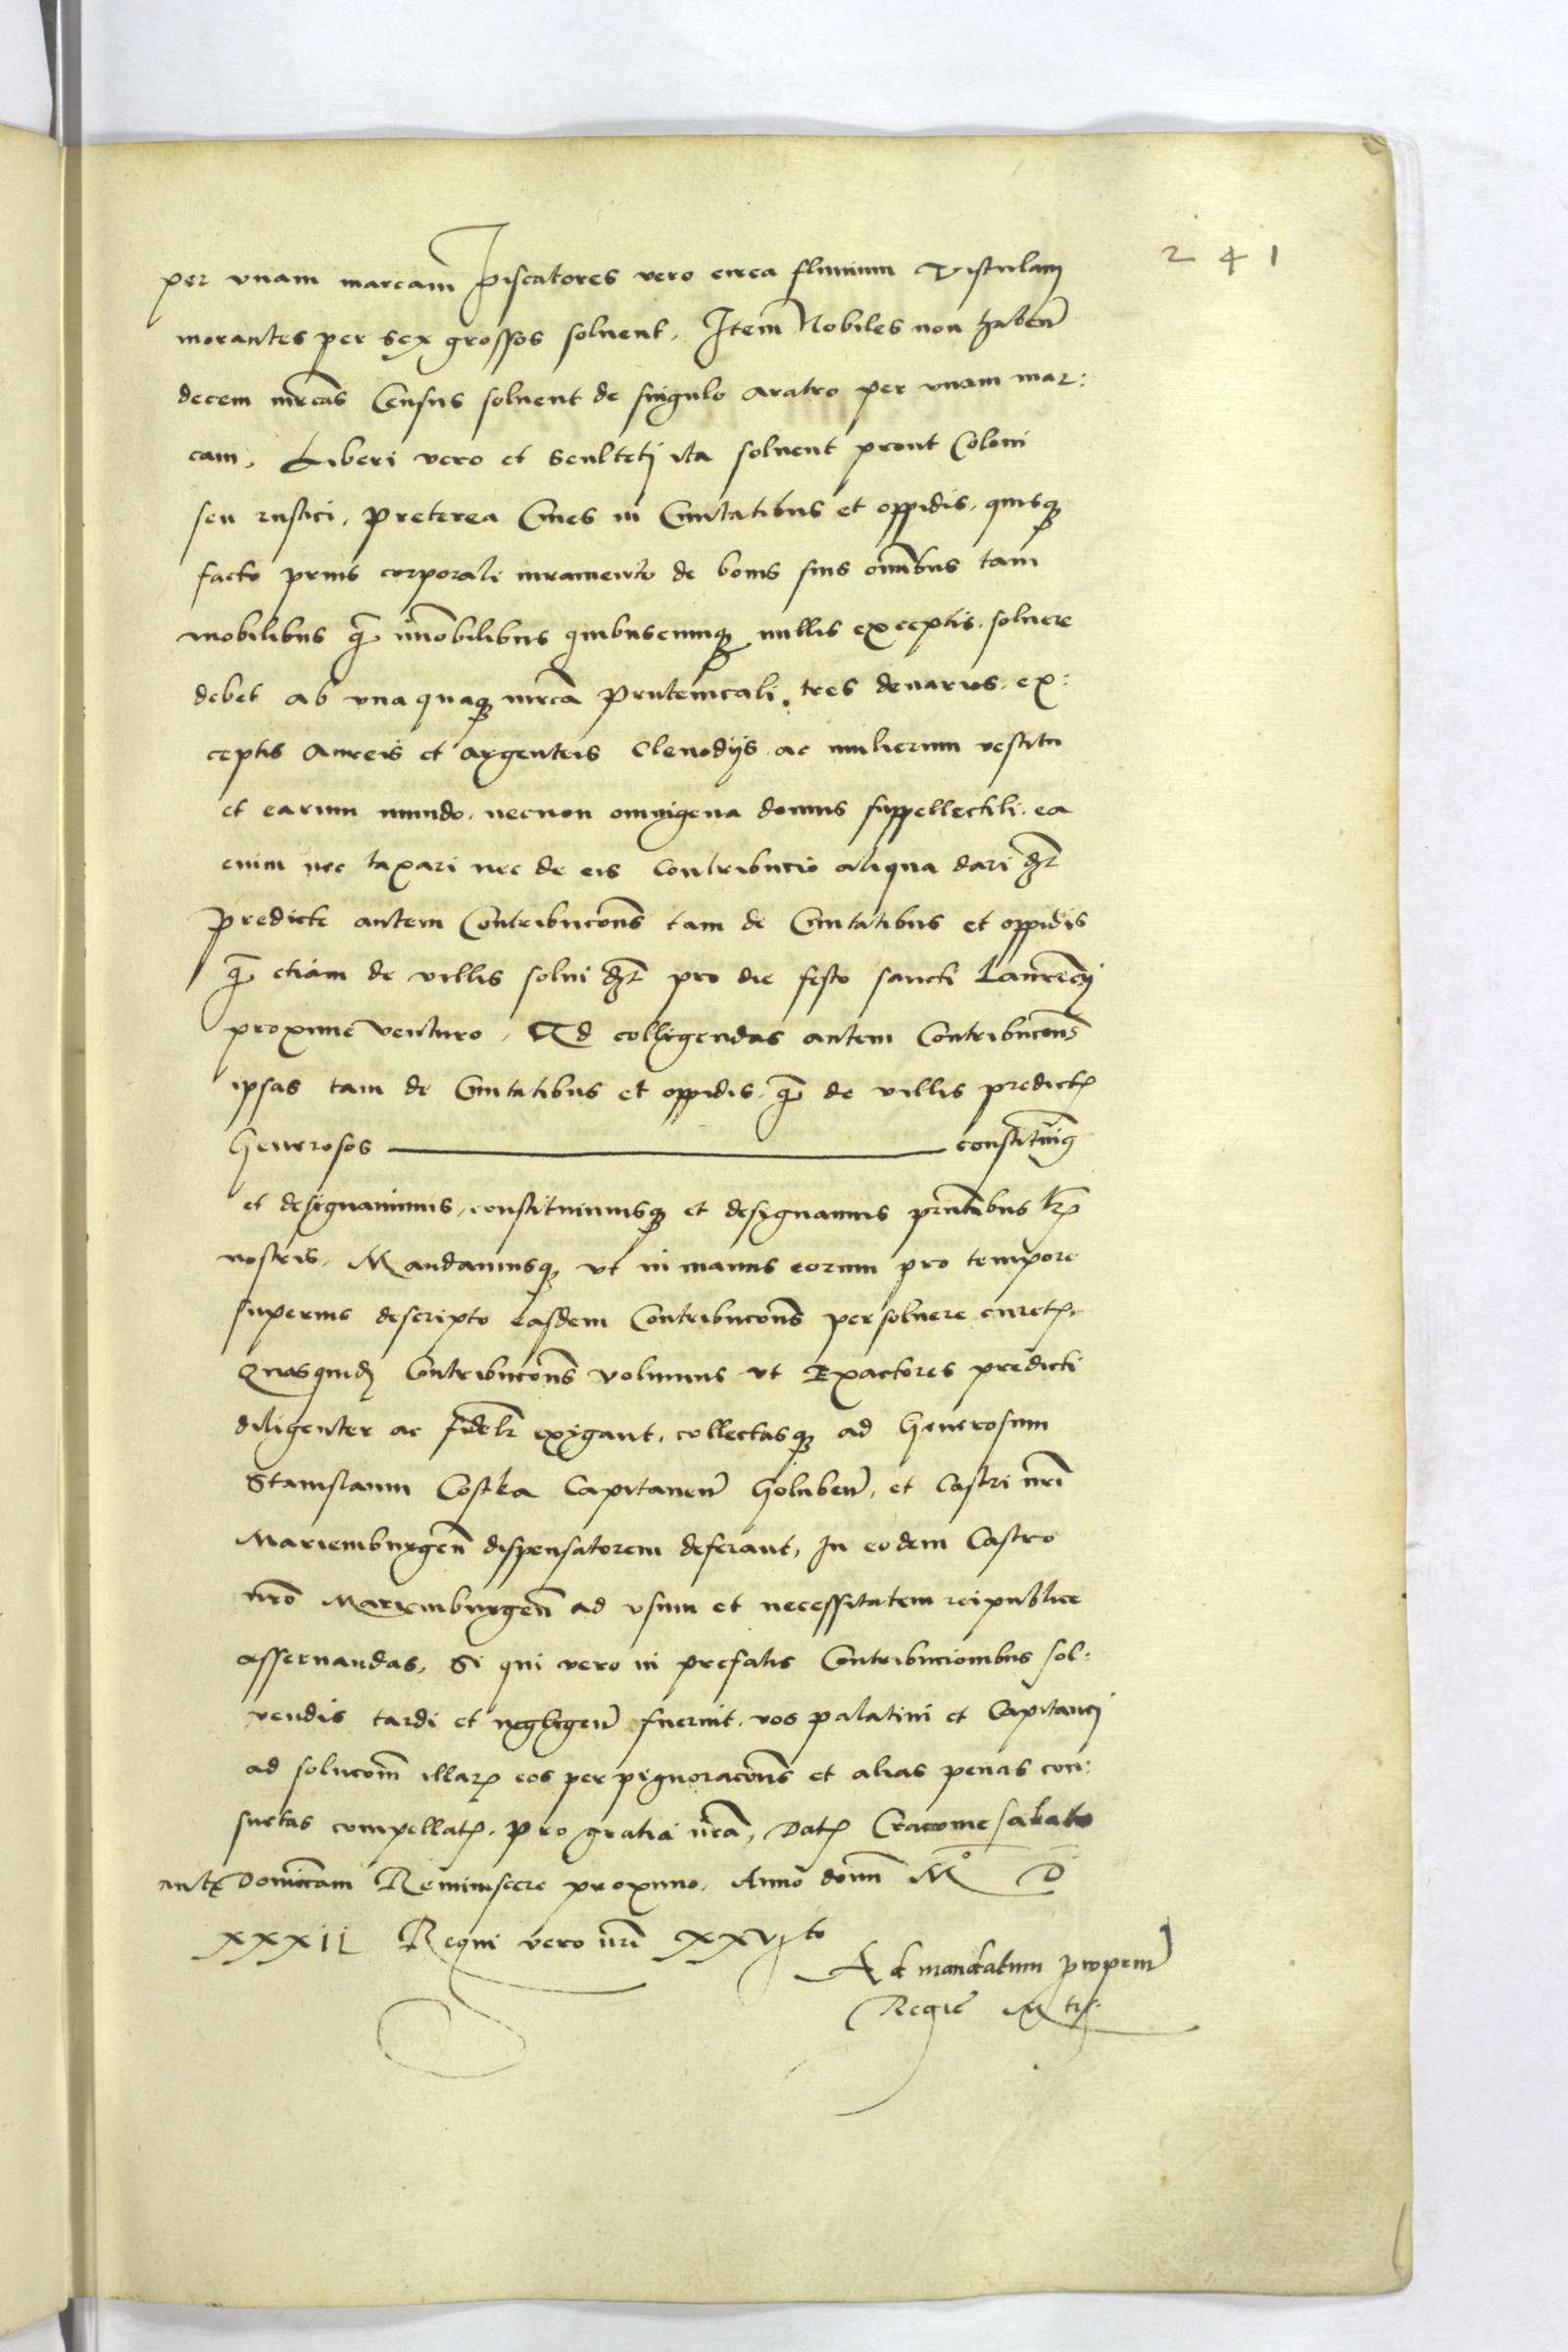 241
per vnam marcam Piscatores vero circa fluuium Vistulam
morantes per sex grossos soluent. Item Nobiles non haben̄
decem mrcas Census soluent de singulo aratro per vnam mar:
cam, Liberi vero et Scultetj ita soluent prout Coloni
seu rustici, preterea Ciues in Ciuitatibus et oppidis, quisq3
facto prius corporali iuramento de bonis suis omībus tam
mobilibus q̄ imobilibus quibuscunq3 nullis exceptis, soluere
debet ab vna quaq3 mrca Prutenicali, tres denarios, ex:
ceptis Aureis et Argenteis Clenodijs ac mulierum vestitu
et earum mundo, necnon omnigena domus suppellectili. ea
enim nec taxari nec de eis Contribucio aliqua dari
predicte autem Contribucōns tam de Ciuitatibus et oppidis
q̄ etiam de villis solui pro die festo sancti Laurēcij
proxime venturo. Ad colligendas autem Contribucōns
ipsas tam de Ciuitatibus et oppidis, q̄ de villis predict
Generosos ——— constituim9
et designauimus, constituimusq3 et designamus pn̄tibus
nostris, Mandamusq3 vt in manus eorum pro tempore
superius descripto easdem Contribucōns persoluere curet,
Quasquid Contribucōns volumus vt Exactores predicti
diligenter ac fidelr exigant, collectasq3 ad Generosum
Stanislaum Costka Capitaneū Goluben̄, et Castri nrī
Mariemburgen̄ dispensatorem deferant, In eodem Castro
nrō Mariemburgen̄ ad vsum et necessitatem reipublice
asseruandas, Si qui vero in prefatis Contribucionibus sol:
vendis tardi et negligen̄ fuerint, vos palatini et Capitanej
ad solucōm illar eos per pignoracōns et alias penas con:
suetas compellat, pro gratia nrā, Dat Cracouie sabato
ante Dominicam Reminiscere proximo. Anno domī M° D
XXXII Regni vero nrī XXVjto
Ad mandatum propriū
Regie Mtis